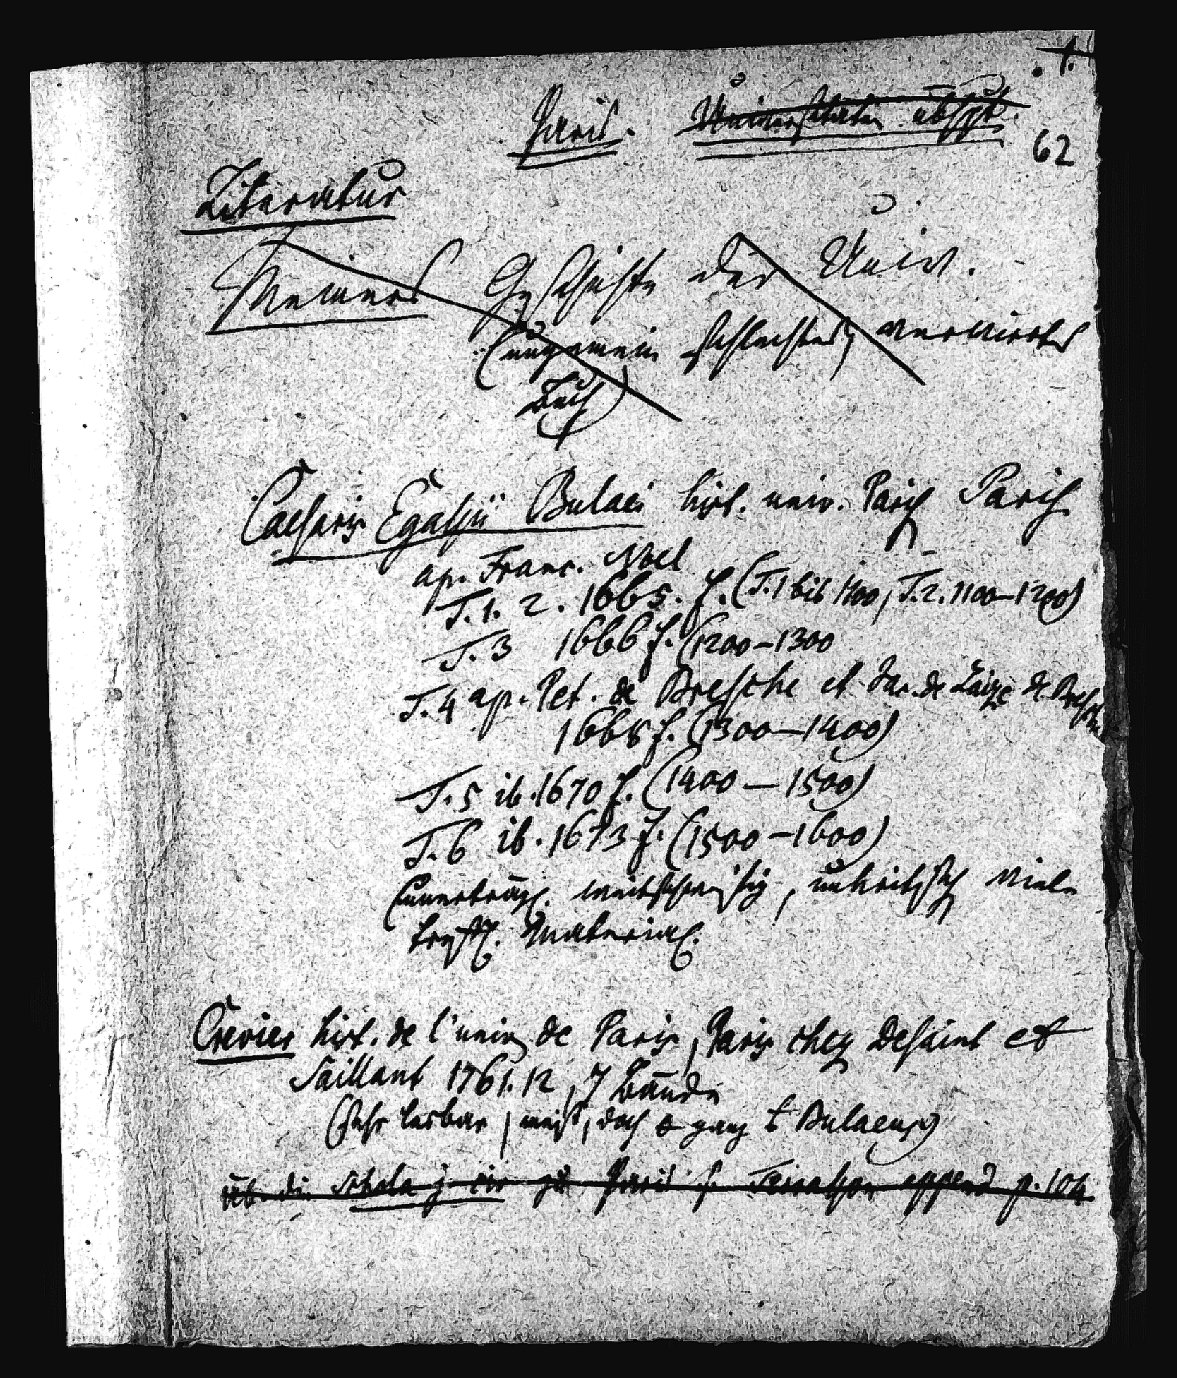 1.
Paris. Universitäten übhpt.
62
Literatur
Meiners Geschichte der Univ.
(ungemein schlechtes, verwirrtes
Buch)
Caesaris Egassii Bulaei hist. univ. Paris Paris
ap. Franc. Noel
T. 1. 2. 1665. f. (T. 1 bis 1100, T. 2. 1100–1200)
T. 3 1666 f. (1200–1300
T. 4 ap. Pet. de Bresche et Jac. de Laize de Bresche
1668 f. (1300–1400)
T. 5 ib. 1670 f. (1400–1500)
T. 6 ib. 1673 f. (1500–1600)
(unerträgl. weitschweifig, unkritisch viel
Material.
Crevier hist. de l'univ de Paris, Paris chez Desaint et
Saillant 1761. 12, 7 Bände
(sehr lesbar, meist, doch ganz Bulaeus)
üb. die Schola zu Paris s. Terrasson append p. 104